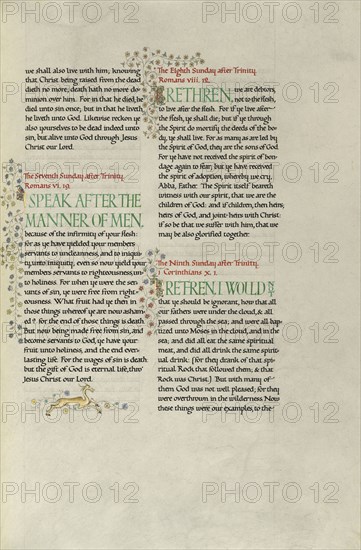 we shall also live with him; knowing
that Christ being raised from the dead
dieth no more; death hath no more do-
minion over him. For in that he died, he
died unto sin once; but in that he liveth,
he liveth unto God. Likewise reckon ye
also yourselves to be dead indeed unto
sin, but alive unto God through Jesus
Christ our Lord.
The Seventh Sunday after Trinity.
Romans vi. 19.
I SPEAK AFTER THE
MANNER OF MEN,
because of the infirmity of your flesh:
for as ye have yielded your members
servants to uncleanness, and to iniqui-
ty unto iniquity, even so now yield your
members servants to righteousness, un-
to holiness. For when ye were the ser-
vants of sin, ye were free from right-
eousness. What fruit had ye then in
those things whereof ye are now asham-
ed? for the end of those things is death.
But now being made free from sin, and
become servants to God, ye have your
fruit unto holiness, and the end ever-
lasting life. For the wages of sin is death:
but the gift of God is eternal life, thro'
Jesus Christ our Lord.
The Eighth Sunday after Trinity.
Romans viii. 12.
BRETHREN, we are debtors,
not to the flesh,
to live after the flesh. For if ye live after
the flesh, ye shall die; but if ye through
the Spirit do mortify the deeds of the bo-
dy, ye shall live. For as many as are led by
the Spirit of God, they are the sons of God.
For ye have not received the spirit of bon-
dage again to fear; but ye have received
the spirit of adoption, whereby we cry,
Abba, Father. The Spirit itself beareth
witness with our spirit, that we are the
children of God: and if children, then heirs;
heirs of God, and joint-heirs with Christ:
if so be that we suffer with him, that we
may be also glorified together.
The Ninth Sunday after Trinity.
1 Corinthians x. 1.
BRETHREN, I WOULD NOT
that ye should be ignorant, how that all
our fathers were under the cloud, & all
passed through the sea; and were all bap-
tized unto Moses in the cloud, and in the
sea; and did all eat the same spiritual
meat, and did all drink the same spirit-
ual drink: (for they drank of that spi-
ritual Rock that followed them; & that
Rock was Christ.) But with many of
them God was not well pleased; for they
were overthrown in the wilderness. Now
these things were our examples, to the
PHOTO 12